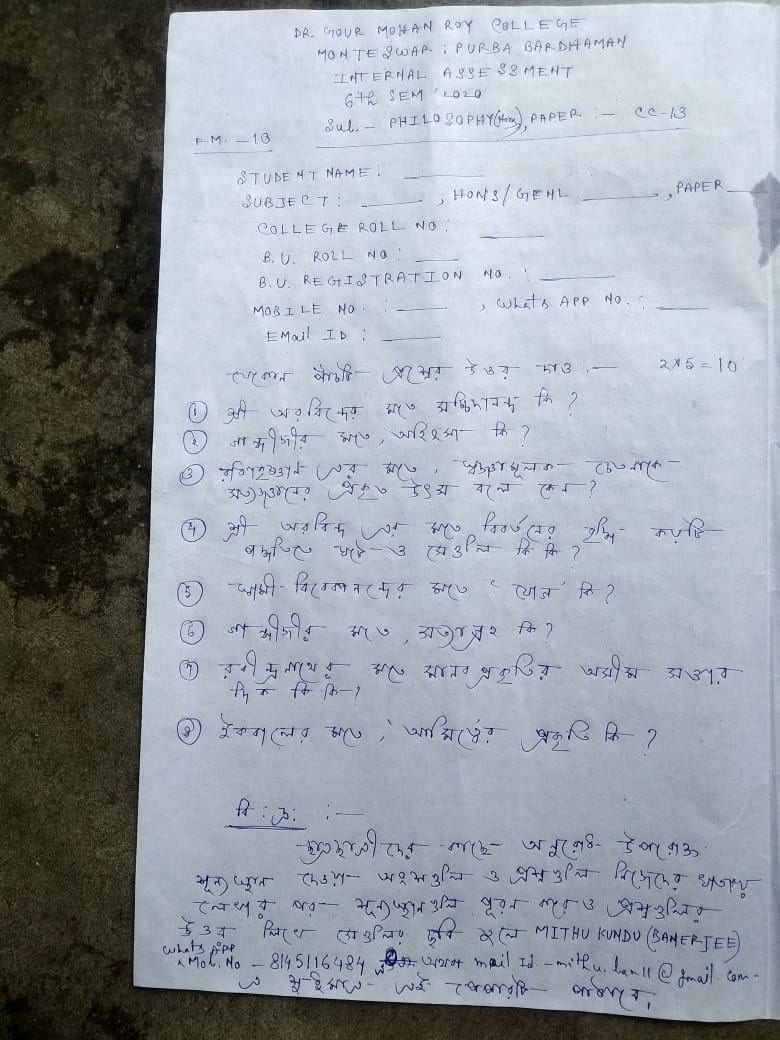 DR. GOUR MOHAN ROY COLLEGE
MONTESWAR : PURBA BARDHAMAN
INTERNAL ASSESSMENT
6th SEM '2020
Sub. - PHILOSOPHY(Hons), PAPER :- CC-13
F.M. - 10
STUDENT NAME :
SUBJECT : , HONS/GENL , PAPER
COLLEGE ROLL NO :
B.U. ROLL NO :
B.U. REGISTRATION NO. :
MOBILE NO. : , Whats APP NO. :
EMail ID :
যেকোন পাঁচটি প্রশ্নের উত্তর দাও :- 2x5=10
① শ্রী অরবিন্দের মতে সচ্চিদানন্দ কি ?
② গান্ধীজীর মতে, অহিংসা কি ?
③ রাধাকৃষ্ণান এর মতে, স্বজ্ঞামূলক চেতনাকে
সত্যজ্ঞানের প্রকৃত উৎস বলে কেন ?
④ শ্রী অরবিন্দ এর মতে বিবর্তনের কয়টি
পদ্ধতিতে ঘটে ও সেগুলি কি কি ?
⑤ স্বামী বিবেকানন্দের মতে 'যোগ' কি ?
⑥ গান্ধীজীর মতে, সত্যাগ্রহ কি ?
⑦ রবীন্দ্রনাথের মতে মানব প্রকৃতির অসীম সত্তার
দিক কি কি ?
⑧ ইকবালের মতে, আমিত্বের প্রকৃতি কি ?
বি : দ্র : :-
ছাত্রছাত্রীদের কাছে অনুরোধ উপরোক্ত
শূন্যস্থান দেওয়া অংশগুলি ও প্রশ্নগুলি নিজেদের খাতায়
লেখার পর শূন্যস্থানগুলি পূরন করে ও প্রশ্নগুলির
উত্তর লিখে সেগুলির ছবি তুলে MITHU KUNDU (BANERJEE)
Whats App
Mob. No - 8145116484 অথবা mail Id - mithu.ban11@gmail.com -
এ এই পেপারটি পাঠাবে।